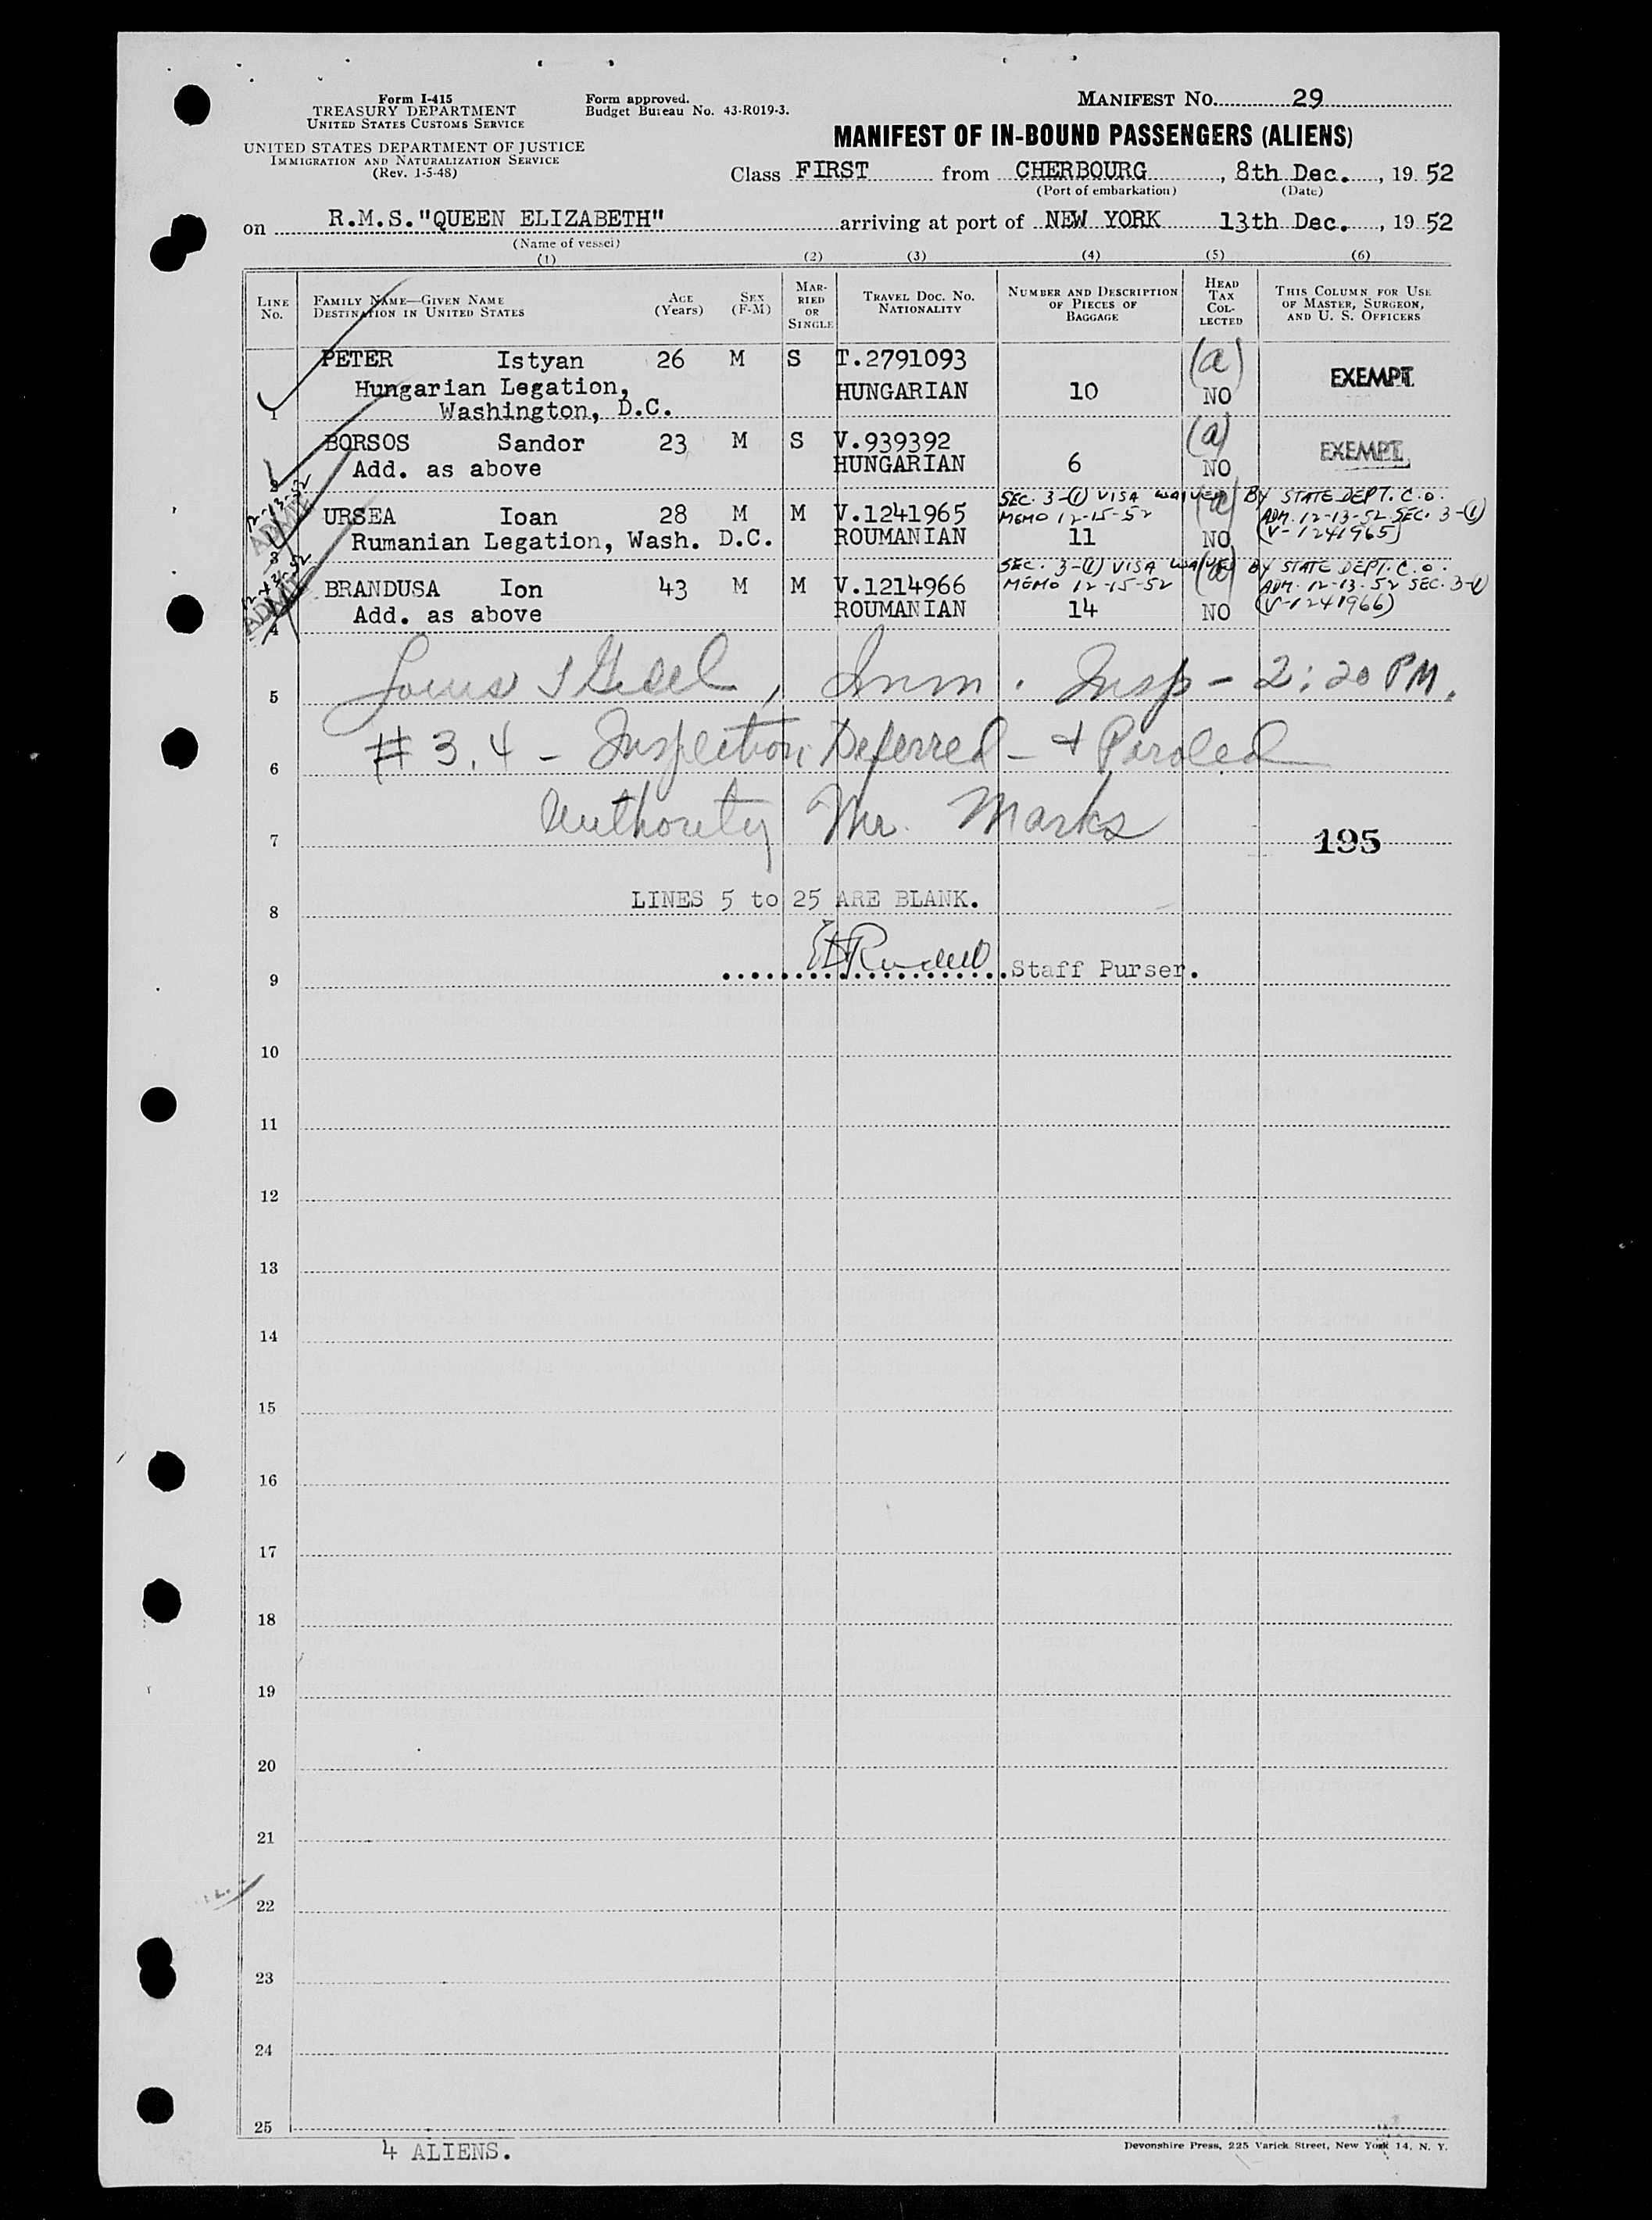 Form I-415
TREASURY DEPARTMENT
UNITED STATES CUSTOMS SERVICE
UNITED STATES DEPARTMENT OF JUSTICE
IMMIGRATION AND NATURALIZATION SERVICE
(Rev. 1-5-48)
Form approved.
Budget Bureau No. 43-R019-3.
MANIFEST NO. 29
MANIFEST OF IN-BOUND PASSENGERS (ALIENS)
Class FIRST from CHERBOURG, 8th Dec., 19 52
(Port of embarkation) (Date)
on R.M.S."QUEEN ELIZABETH" arriving at port of NEW YORK 13th Dec., 19 52
(Name of vessel)
(1) (2) (3) (4) (5) (6)
LINE NO. FAMILY NAME—GIVEN NAME DESTINATION IN UNITED STATES AGE (Years) SEX (F-M) MARRIED OR SINGLE TRAVEL DOC. NO. NATIONALITY NUMBER AND DESCRIPTION OF PIECES OF BAGGAGE HEAD TAX COLLECTED THIS COLUMN FOR USE OF MASTER, SURGEON, AND U. S. OFFICERS
PETER Istyan 26 M S T.2791093 (a) EXEMPT
Hungarian Legation, HUNGARIAN 10 NO
1 Washington, D.C.
BORSOS Sandor 23 M S V.939392 (a) EXEMPT
Add. as above HUNGARIAN 6 NO
2
12-13-52 ADMT SEC. 3-(1) VISA WAIVED (a) BY STATE DEPT. C.O.
URSEA Ioan 28 M M V.1241965 MEMO 12-15-52 ADM. 12-13-52 SEC. 3-(1)
Rumanian Legation, Wash. D.C. ROUMANIAN 11 NO (V-1241965)
3
12-13-52 ADMT SEC. 3-(1) VISA WAIVED (a) BY STATE DEPT. C.O.
BRANDUSA Ion 43 M M V.1214966 MEMO 12-15-52 ADM. 12-13-52 SEC. 3-(1)
Add. as above ROUMANIAN 14 NO (V-1241966)
4
5 Imm. Insp - 2:20 PM.
6 #3,4 - Inspection Deferred - & Paroled
7 Authority Mr. Marks 195
LINES 5 to 25 ARE BLANK.
8
9 Staff Purser.
10
11
12
13
14
15
16
17
18
19
20
21
22
23
24
25
4 ALIENS.
Devonshire Press, 225 Varick Street, New York 14, N. Y.